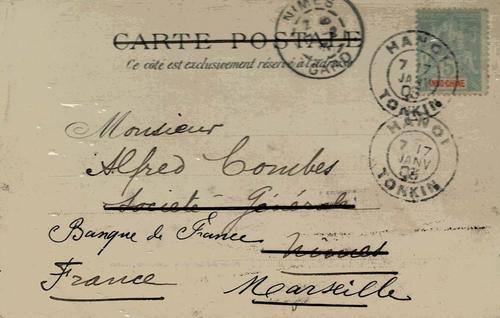 CARTE POSTALE
Ce côté est exclusivement réservé à l'adresse
NIMES
GARD
INDO-CHINE
HANOI
7 17
JANV
03
TONKIN
HANOI
7 17
JANV
TONKIN
Monsieur
Alfred Combes
Societé Générale
Banque de France Nimes
France Marseille